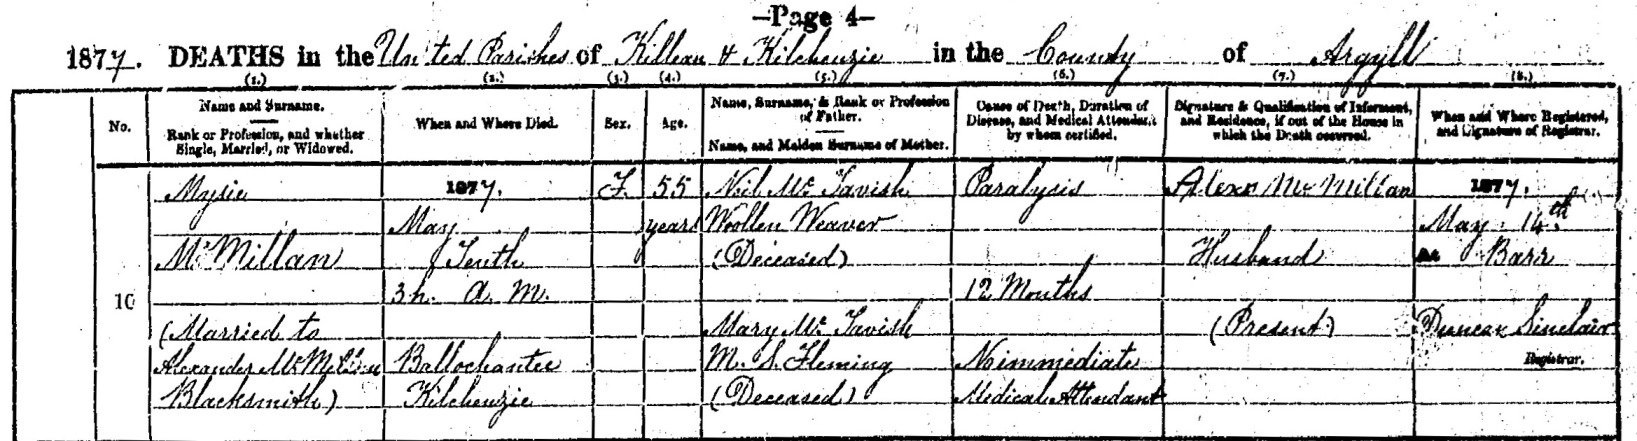 –Page 4–
1877. DEATHS in the United Parishes of Killean & Kilchenzie in the County of Argyll
(1.) (2.) (3.) (4.) (5.) (6.) (7.) (8.)
No.
Name and Surname.
Rank or Profession, and whether
Single, Married, or Widowed.
When and Where Died.
Sex.
Age.
Name, Surname, & Rank or Profession
of Father.
Name, and Maiden Surname of Mother.
Cause of Death, Duration of
Disease, and Medical Attendant
by whom certified.
Signature & Qualification of Informant,
and Residence, if out of the House in
which the Death occurred.
When and Where Registered,
and Signature of Registrar.
10
Mysie
McMillan
(Married to
Alexander McMillan
Blacksmith)
1877.
May
Tenth
3h. A.M.
Ballochantee
Kilchenzie
F.
55
years
Neil McTavish
Woollen Weaver
(Deceased)
Mary McTavish
M.S. Fleming
(Deceased)
Paralysis
12 Months
No immediate
Medical Attendant
Alexr McMillan
Husband
(Present)
1877.
May 14th
At Barr
Duncan Sinclair
Registrar.